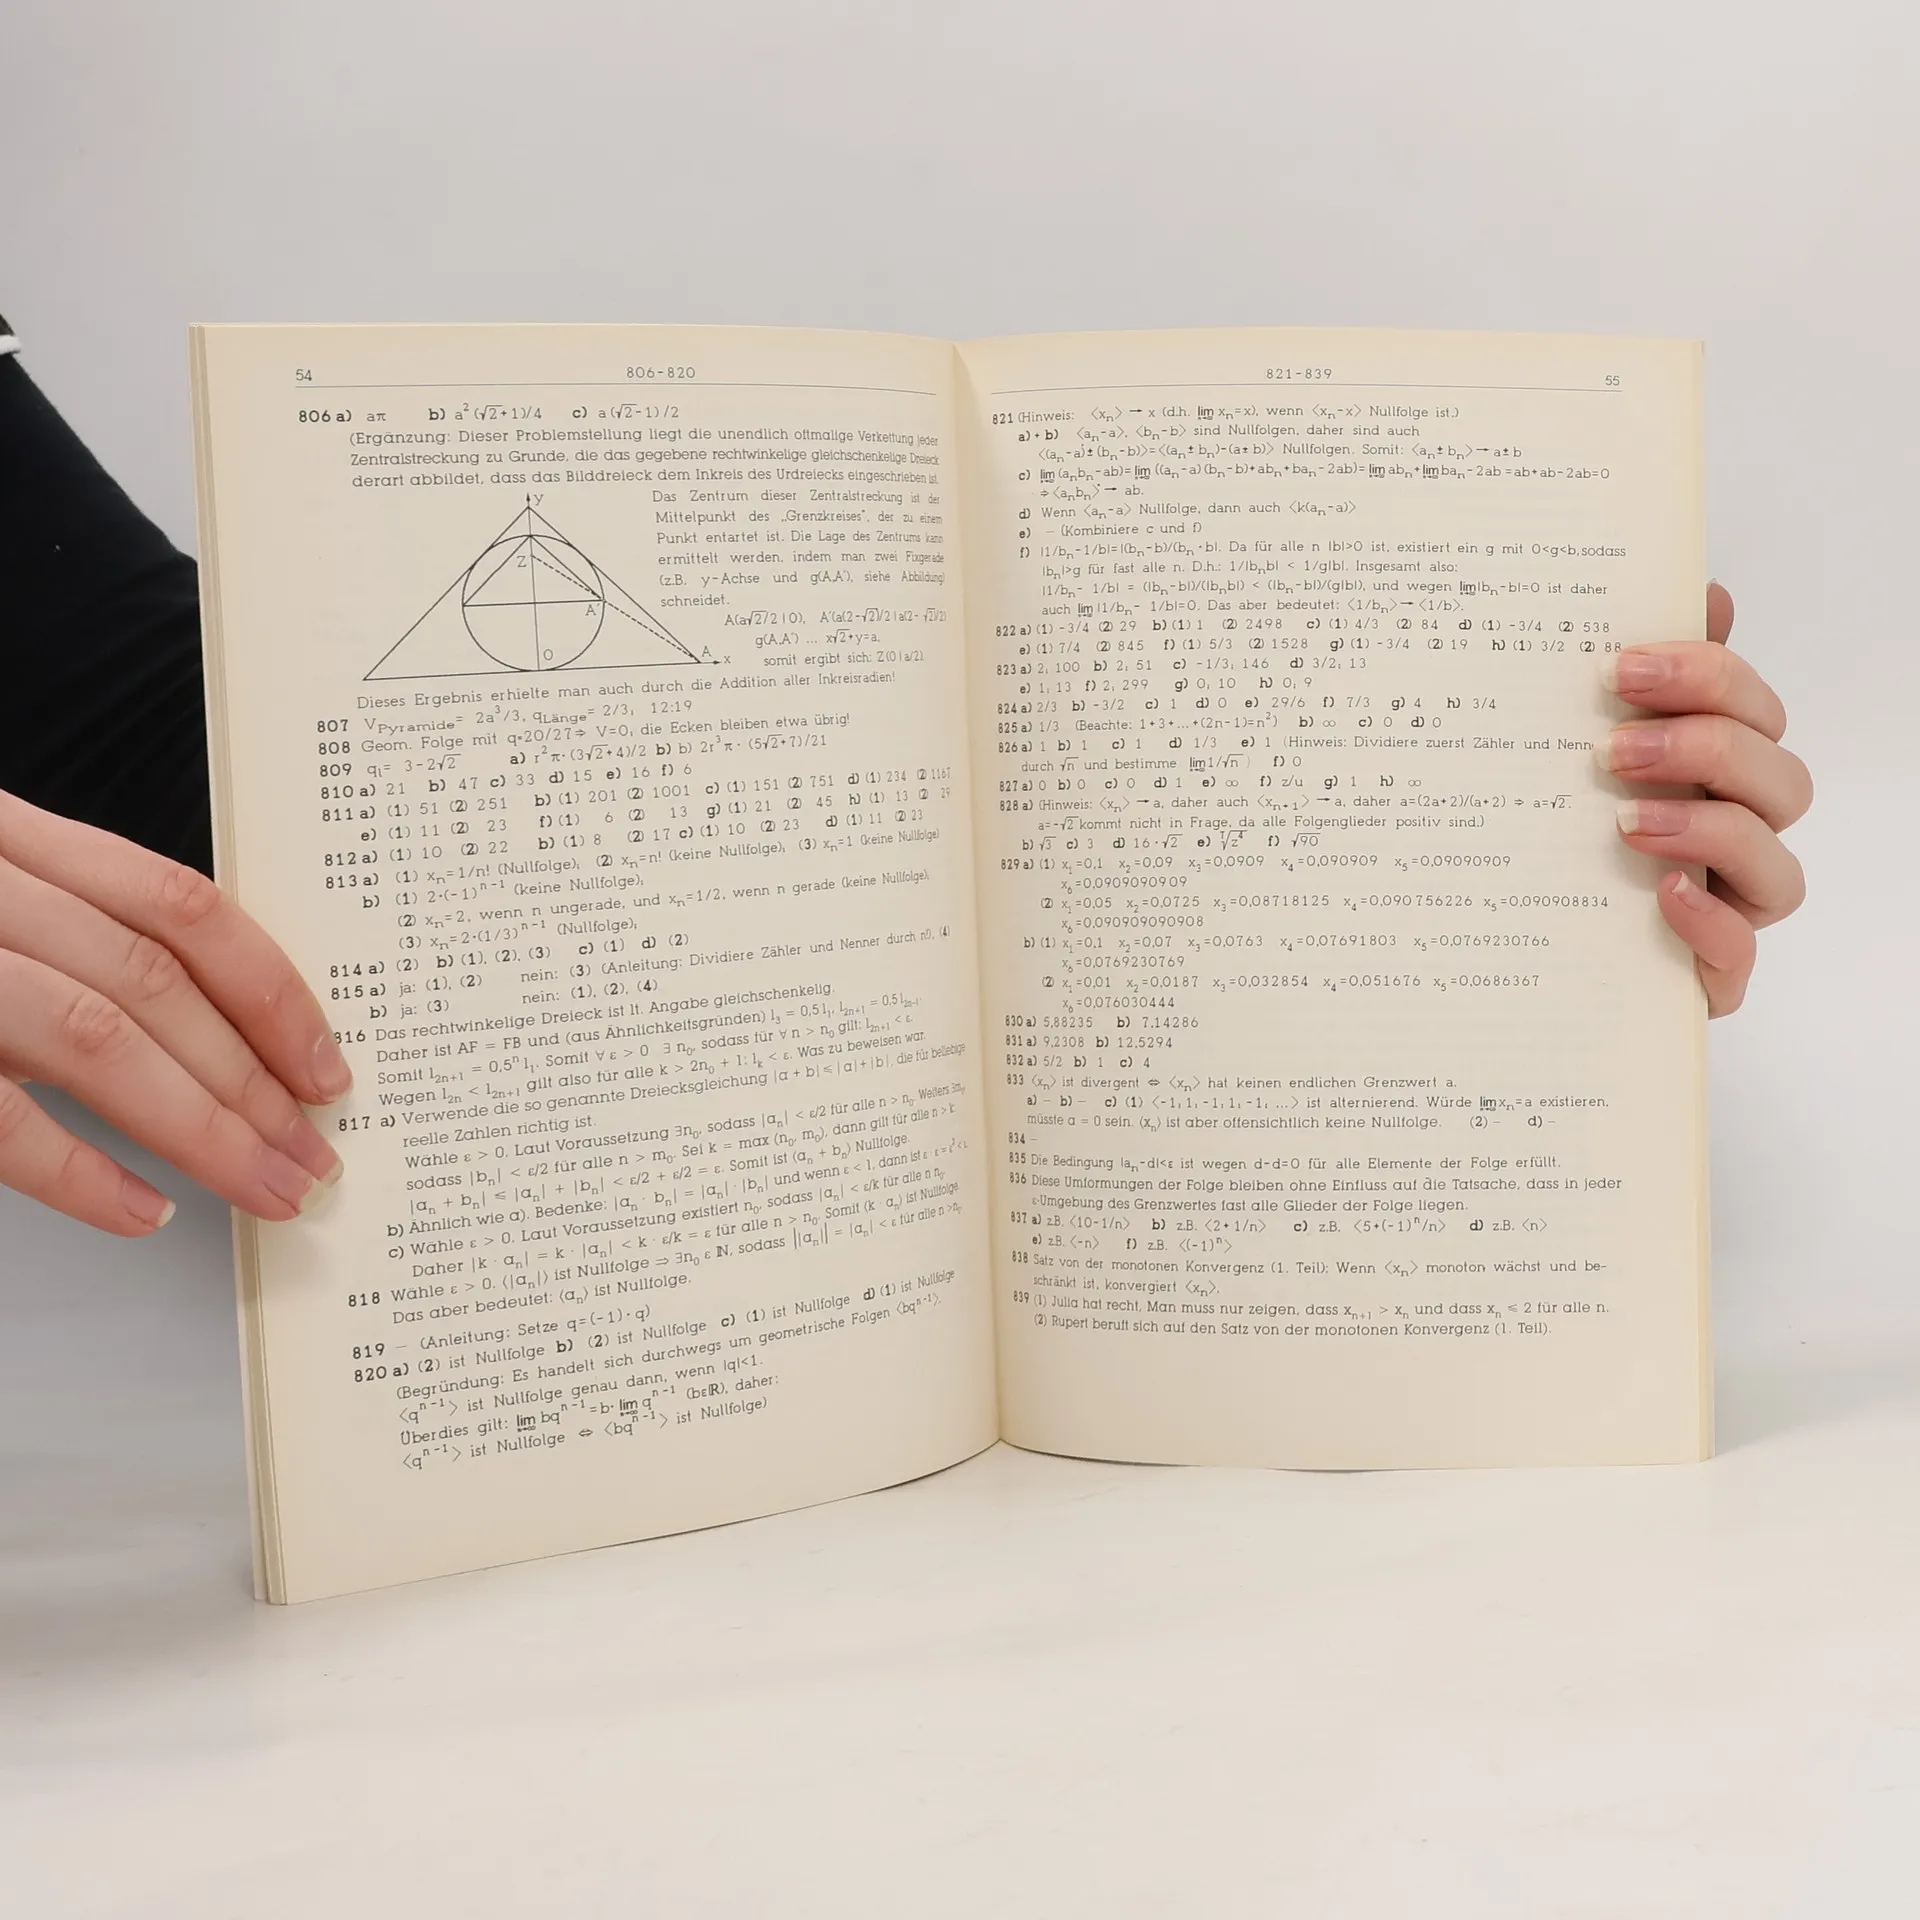 54
806-820
806 a) aπ b) a²(√2+1)/4 c) a(√2-1)/2
(Ergänzung: Dieser Problemstellung liegt die unendlich oftmalige Verkettung jeder
Zentralstreckung zu Grunde, die das gegebene rechtwinkelige gleichschenkelige Dreieck
derart abbildet, dass das Bilddreieck dem Inkreis des Urdreiecks eingeschrieben ist.
Das Zentrum dieser Zentralstreckung ist der
Mittelpunkt des „Grenzkreises", der zu einem
Punkt entartet ist. Die Lage des Zentrums kann
ermittelt werden, indem man zwei Fixgerade
(z.B. y-Achse und g(A,A'), siehe Abbildung)
schneidet.
A(a√2/2|0), A'(a(2-√2)/2|a(2-√2)/2)
g(A,A') ... x√2+y=a,
somit ergibt sich: Z(0|a/2)
y
Z
A'
O
A
x
Dieses Ergebnis erhielte man auch durch die Addition aller Inkreisradien!
807 V_Pyramide= 2a³/3, q_Länge= 2/3; 12:19
808 Geom. Folge mit q=20/27⇒ V=0, die Ecken bleiben etwa übrig!
809 q₁= 3-2√2 a) r²π·(3√2+4)/2 b) b) 2r³π·(5√2+7)/21
810 a) 21 b) 47 c) 33 d) 15 e) 16 f) 6
811 a) (1) 51 (2) 251 b) (1) 201 (2) 1001 c) (1) 151 (2) 751 d) (1) 234 (2) 1167
e) (1) 11 (2) 23 f) (1) 6 (2) 13 g) (1) 21 (2) 45 h) (1) 13 (2) 29
812 a) (1) 10 (2) 22 b) (1) 8 (2) 17 c) (1) 10 (2) 23 d) (1) 11 (2) 23
813 a) (1) xₙ=1/n! (Nullfolge); (2) xₙ=n! (keine Nullfolge); (3) xₙ=1 (keine Nullfolge)
b) (1) 2·(-1)ⁿ⁻¹ (keine Nullfolge);
(2) xₙ=2, wenn n ungerade, und xₙ=1/2, wenn n gerade (keine Nullfolge);
(3) xₙ=2·(1/3)ⁿ⁻¹ (Nullfolge);
814 a) (2) b) (1), (2), (3) c) (1) d) (2)
815 a) ja: (1), (2) nein: (3) (Anleitung: Dividiere Zähler und Nenner durch n!), (4)
b) ja: (3) nein: (1), (2), (4)
816 Das rechtwinkelige Dreieck ist lt. Angabe gleichschenkelig.
Daher ist AF = FB und (aus Ähnlichkeitsgründen) l₃ = 0,5 l₁, l₂ₙ₊₁ = 0,5 l₂ₙ₋₁.
Somit l₂ₙ₊₁ = 0,5ⁿ l₁. Somit ∀ ε > 0 ∃ n₀, sodass für ∀ n > n₀ gilt: l₂ₙ₊₁ < ε.
Wegen l₂ₙ < l₂ₙ₊₁ gilt also für alle k > 2n₀ + 1: lₖ < ε. Was zu beweisen war.
817 a) Verwende die so genannte Dreiecksgleichung |a + b| ≤ |a| + |b|, die für beliebige
reelle Zahlen richtig ist.
Wähle ε > 0. Laut Voraussetzung ∃n₀, sodass |aₙ| < ε/2 für alle n > n₀. Weiters ∃m₀,
sodass |bₙ| < ε/2 für alle n > m₀. Sei k = max (n₀, m₀), dann gilt für alle n > k:
|aₙ + bₙ| ≤ |aₙ| + |bₙ| < ε/2 + ε/2 = ε. Somit ist ⟨aₙ + bₙ⟩ Nullfolge.
b) Ähnlich wie a). Bedenke: |aₙ · bₙ| = |aₙ| · |bₙ| und wenn ε < 1, dann ist ε · ε = ε² < 1.
c) Wähle ε > 0. Laut Voraussetzung existiert n₀, sodass |aₙ| < ε/k für alle n > n₀.
Daher |k · aₙ| = k · |aₙ| < k · ε/k = ε für alle n > n₀. Somit ⟨k · aₙ⟩ ist Nullfolge.
818 Wähle ε > 0. ⟨|aₙ|⟩ ist Nullfolge ⇒ ∃n₀ ε ℕ, sodass ||aₙ|| = |aₙ| < ε für alle n > n₀.
Das aber bedeutet: ⟨aₙ⟩ ist Nullfolge.
819 – (Anleitung: Setze q=(-1)·q)
820 a) (2) ist Nullfolge b) (2) ist Nullfolge c) (1) ist Nullfolge d) (1) ist Nullfolge
(Begründung: Es handelt sich durchwegs um geometrische Folgen ⟨bqⁿ⁻¹⟩.
⟨qⁿ⁻¹⟩ ist Nullfolge genau dann, wenn |q|<1.
Überdies gilt: lim bqⁿ⁻¹=b·lim qⁿ⁻¹ (bεℝ), daher:
⟨qⁿ⁻¹⟩ ist Nullfolge ⇔ ⟨bqⁿ⁻¹⟩ ist Nullfolge)
821-839
55
821 (Hinweis: ⟨xₙ⟩ → x (d.h. lim xₙ=x), wenn ⟨xₙ-x⟩ Nullfolge ist.)
a) + b) ⟨aₙ-a⟩, ⟨bₙ-b⟩ sind Nullfolgen, daher sind auch
⟨(aₙ-a)±(bₙ-b)⟩=⟨(aₙ±bₙ)-(a±b)⟩ Nullfolgen. Somit: ⟨aₙ±bₙ⟩→ a±b
c) lim (aₙbₙ-ab)= lim ((aₙ-a)(bₙ-b)+abₙ+baₙ-2ab)= lim abₙ+lim baₙ-2ab =ab+ab-2ab=0
⇒ ⟨aₙbₙ⟩ → ab.
d) Wenn ⟨aₙ-a⟩ Nullfolge, dann auch ⟨k(aₙ-a)⟩
e) – (Kombiniere c und f)
f) |1/bₙ-1/b|=|(bₙ-b)/(bₙ·b|. Da für alle n |b|>0 ist, existiert ein g mit 0<g<b,sodass
|bₙ|>g für fast alle n. D.h.: 1/|bₙb| < 1/g|b|. Insgesamt also:
|1/bₙ- 1/b| = (|bₙ-b|)/(|bₙb|) < (|bₙ-b|)/(g|b|), und wegen lim|bₙ-b|=0 ist daher
auch lim |1/bₙ- 1/b|=0. Das aber bedeutet: ⟨1/bₙ⟩→⟨1/b⟩.
822 a) (1) -3/4 (2) 29 b) (1) 1 (2) 2498 c) (1) 4/3 (2) 84 d) (1) -3/4 (2) 538
e) (1) 7/4 (2) 845 f) (1) 5/3 (2) 1528 g) (1) -3/4 (2) 19 h) (1) 3/2 (2) 88
823 a) 2; 100 b) 2; 51 c) -1/3; 146 d) 3/2; 13
e) 1; 13 f) 2; 299 g) 0; 10 h) 0; 9
824 a) 2/3 b) -3/2 c) 1 d) 0 e) 29/6 f) 7/3 g) 4 h) 3/4
825 a) 1/3 (Beachte: 1+3+...+(2n-1)=n²) b) ∞ c) 0 d) 0
826 a) 1 b) 1 c) 1 d) 1/3 e) 1 (Hinweis: Dividiere zuerst Zähler und Nenn
durch √n und bestimme lim 1/√n ) f) 0
827 a) 0 b) 0 c) 0 d) 1 e) ∞ f) z/u g) 1 h) ∞
828 a) (Hinweis: ⟨xₙ⟩ → a, daher auch ⟨xₙ₊₁⟩ → a, daher a=(2a+2)/(a+2) ⇒ a=√2.
a=-√2 kommt nicht in Frage, da alle Folgenglieder positiv sind.)
b) √3 c) 3 d) 16·√2 e) ⁷√z⁴ f) √90
829 a) (1) x₁=0,1 x₂=0,09 x₃=0,0909 x₄=0,090909 x₅=0,09090909
x₆=0,0909090909
(2) x₁=0,05 x₂=0,0725 x₃=0,08718125 x₄=0,090756226 x₅=0,090908834
x₆=0,090909090908
b) (1) x₁=0,1 x₂=0,07 x₃=0,0763 x₄=0,07691803 x₅=0,0769230766
x₆=0,0769230769
(2) x₁=0,01 x₂=0,0187 x₃=0,032854 x₄=0,051676 x₅=0,0686367
x₆=0,076030444
830 a) 5,88235 b) 7,14286
831 a) 9,2308 b) 12,5294
832 a) 5/2 b) 1 c) 4
833 ⟨xₙ⟩ ist divergent ⇔ ⟨xₙ⟩ hat keinen endlichen Grenzwert a.
a) – b) – c) (1) ⟨-1; 1; -1; 1; -1; ...⟩ ist alternierend. Würde lim xₙ=a existieren,
müsste a = 0 sein. ⟨xₙ⟩ ist aber offensichtlich keine Nullfolge. (2) – d) –
834 –
835 Die Bedingung |aₙ-d|<ε ist wegen d-d=0 für alle Elemente der Folge erfüllt.
836 Diese Umformungen der Folge bleiben ohne Einfluss auf die Tatsache, dass in jeder
ε-Umgebung des Grenzwertes fast alle Glieder der Folge liegen.
837 a) z.B. ⟨10-1/n⟩ b) z.B. ⟨2+1/n⟩ c) z.B. ⟨5+(-1)ⁿ/n⟩ d) z.B. ⟨n⟩
e) z.B. ⟨-n⟩ f) z.B. ⟨(-1)ⁿ⟩
838 Satz von der monotonen Konvergenz (1. Teil): Wenn ⟨xₙ⟩ monoton wächst und be-
schränkt ist, konvergiert ⟨xₙ⟩.
839 (1) Julia hat recht. Man muss nur zeigen, dass xₙ₊₁ > xₙ und dass xₙ ≤ 2 für alle n.
(2) Rupert beruft sich auf den Satz von der monotonen Konvergenz (1. Teil).